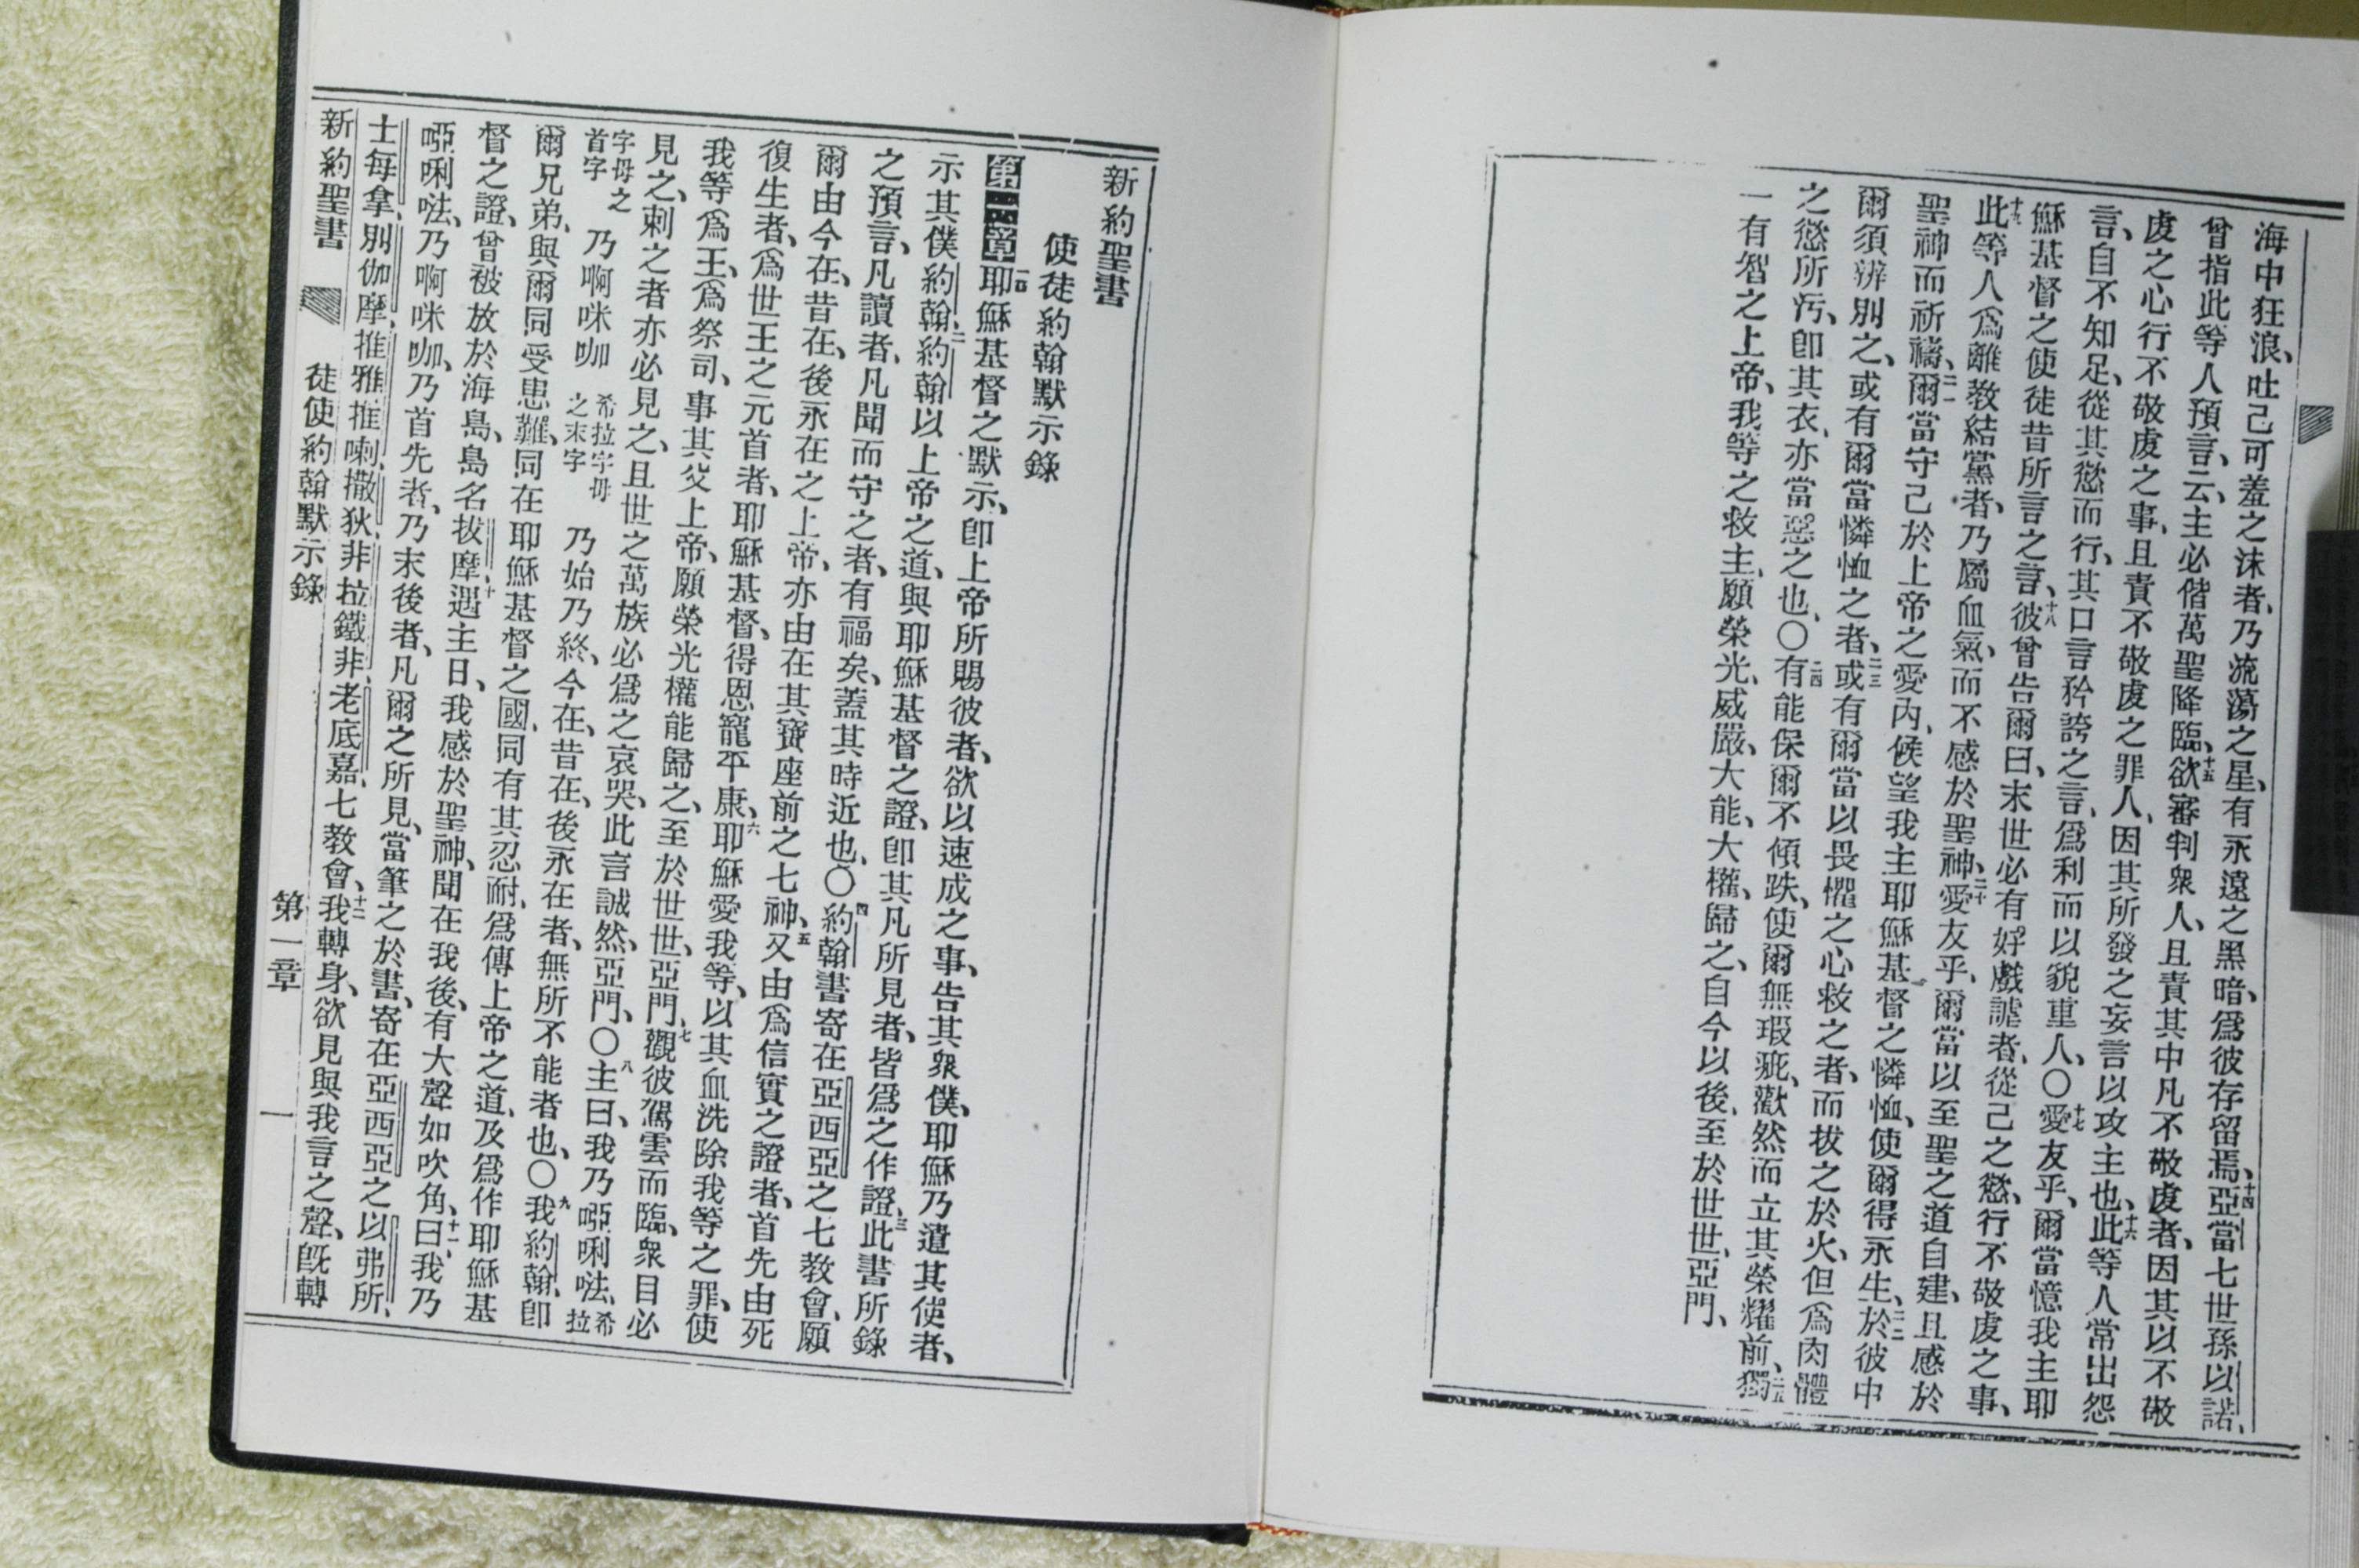 海中狂浪、吐己可羞之沫者、乃流蕩之星、有永遠之黑暗、爲彼存留焉、十四亞當七世孫以諾、
曾指此等人預言、云、主必偕萬聖降臨、十五欲審判衆人、且責其中凡不敬虔者、因其以不敬
虔之心行不敬虔之事、且責不敬虔之罪人、因其所發之妄言以攻主也、十六此等人常出怨
言、自不知足、從其慾而行、其口言矜誇之言、爲利而以貌重人、〇十七愛友乎、爾當憶我主耶
穌基督之使徒昔所言之言、十八彼曾告爾曰、末世必有好戲謔者、從己之慾、行不敬虔之事、
十九此等人、爲離教結黨者、乃屬血氣、而不感於聖神、二十愛友乎、爾當以至聖之道自建、且感於
聖神而祈禱、二一爾當守己於上帝之愛內、候望我主耶穌基督之憐恤、使爾得永生、二二於彼中
爾須辨別之、或有爾當憐恤之者、二三或有爾當以畏懼之心救之者、而拔之於火、但爲肉體
之慾所污、卽其衣、亦當惡之也、〇二四有能保爾不傾跌、使爾無瑕疵、歡然而立其榮耀前、二五獨
一有智之上帝、我等之救主、願榮光、威嚴、大能、大權、歸之、自今以後、至於世世、亞門、
新約聖書
使徒約翰默示錄
第一章一耶穌基督之默示、卽上帝所賜彼者、欲以速成之事、告其衆僕、耶穌乃遣其使者、
示其僕約翰、二約翰以上帝之道、與耶穌基督之證、卽其凡所見者、皆爲之作證、三此書所錄
之預言、凡讀者、凡聞而守之者、有福矣、蓋其時近也、〇四約翰書寄在亞西亞之七教會、願
爾由今在、昔在、後永在之上帝、亦由在其寶座前之七神、五又由爲信實之證者、首先由死
復生者、爲世王之元首者、耶穌基督、得恩寵平康、六耶穌愛我等、以其血洗除我等之罪、使
我等爲王、爲祭司、事其父上帝、願榮光權能歸之、至於世世、亞門、七觀彼駕雲而臨、衆目必
見之、刺之者亦必見之、且世之萬族必爲之哀哭、此言誠然、亞門、〇八主曰、我乃啞唎㕸、希拉
字母之首字 乃啊咪咖 希拉字母之末字 乃始乃終、今在、昔在、後永在者、無所不能者也、〇九我約翰、卽
爾兄弟、與爾同受患難、同在耶穌基督之國、同有其忍耐、爲傳上帝之道、及爲作耶穌基
督之證、曾被放於海島、島名拔摩、十遇主日、我感於聖神、聞在我後、有大聲如吹角、十一曰、我乃
啞唎㕸、乃啊咪咖、乃首先者、乃末後者、凡爾之所見、當筆之於書、寄在亞西亞之以弗所、
士每拿、別伽摩、推雅推喇、撒狄、非拉鐵非、老底嘉、七教會、十二我轉身、欲見與我言之聲、旣轉
新約聖書 徒使約翰默示錄 第一章 一